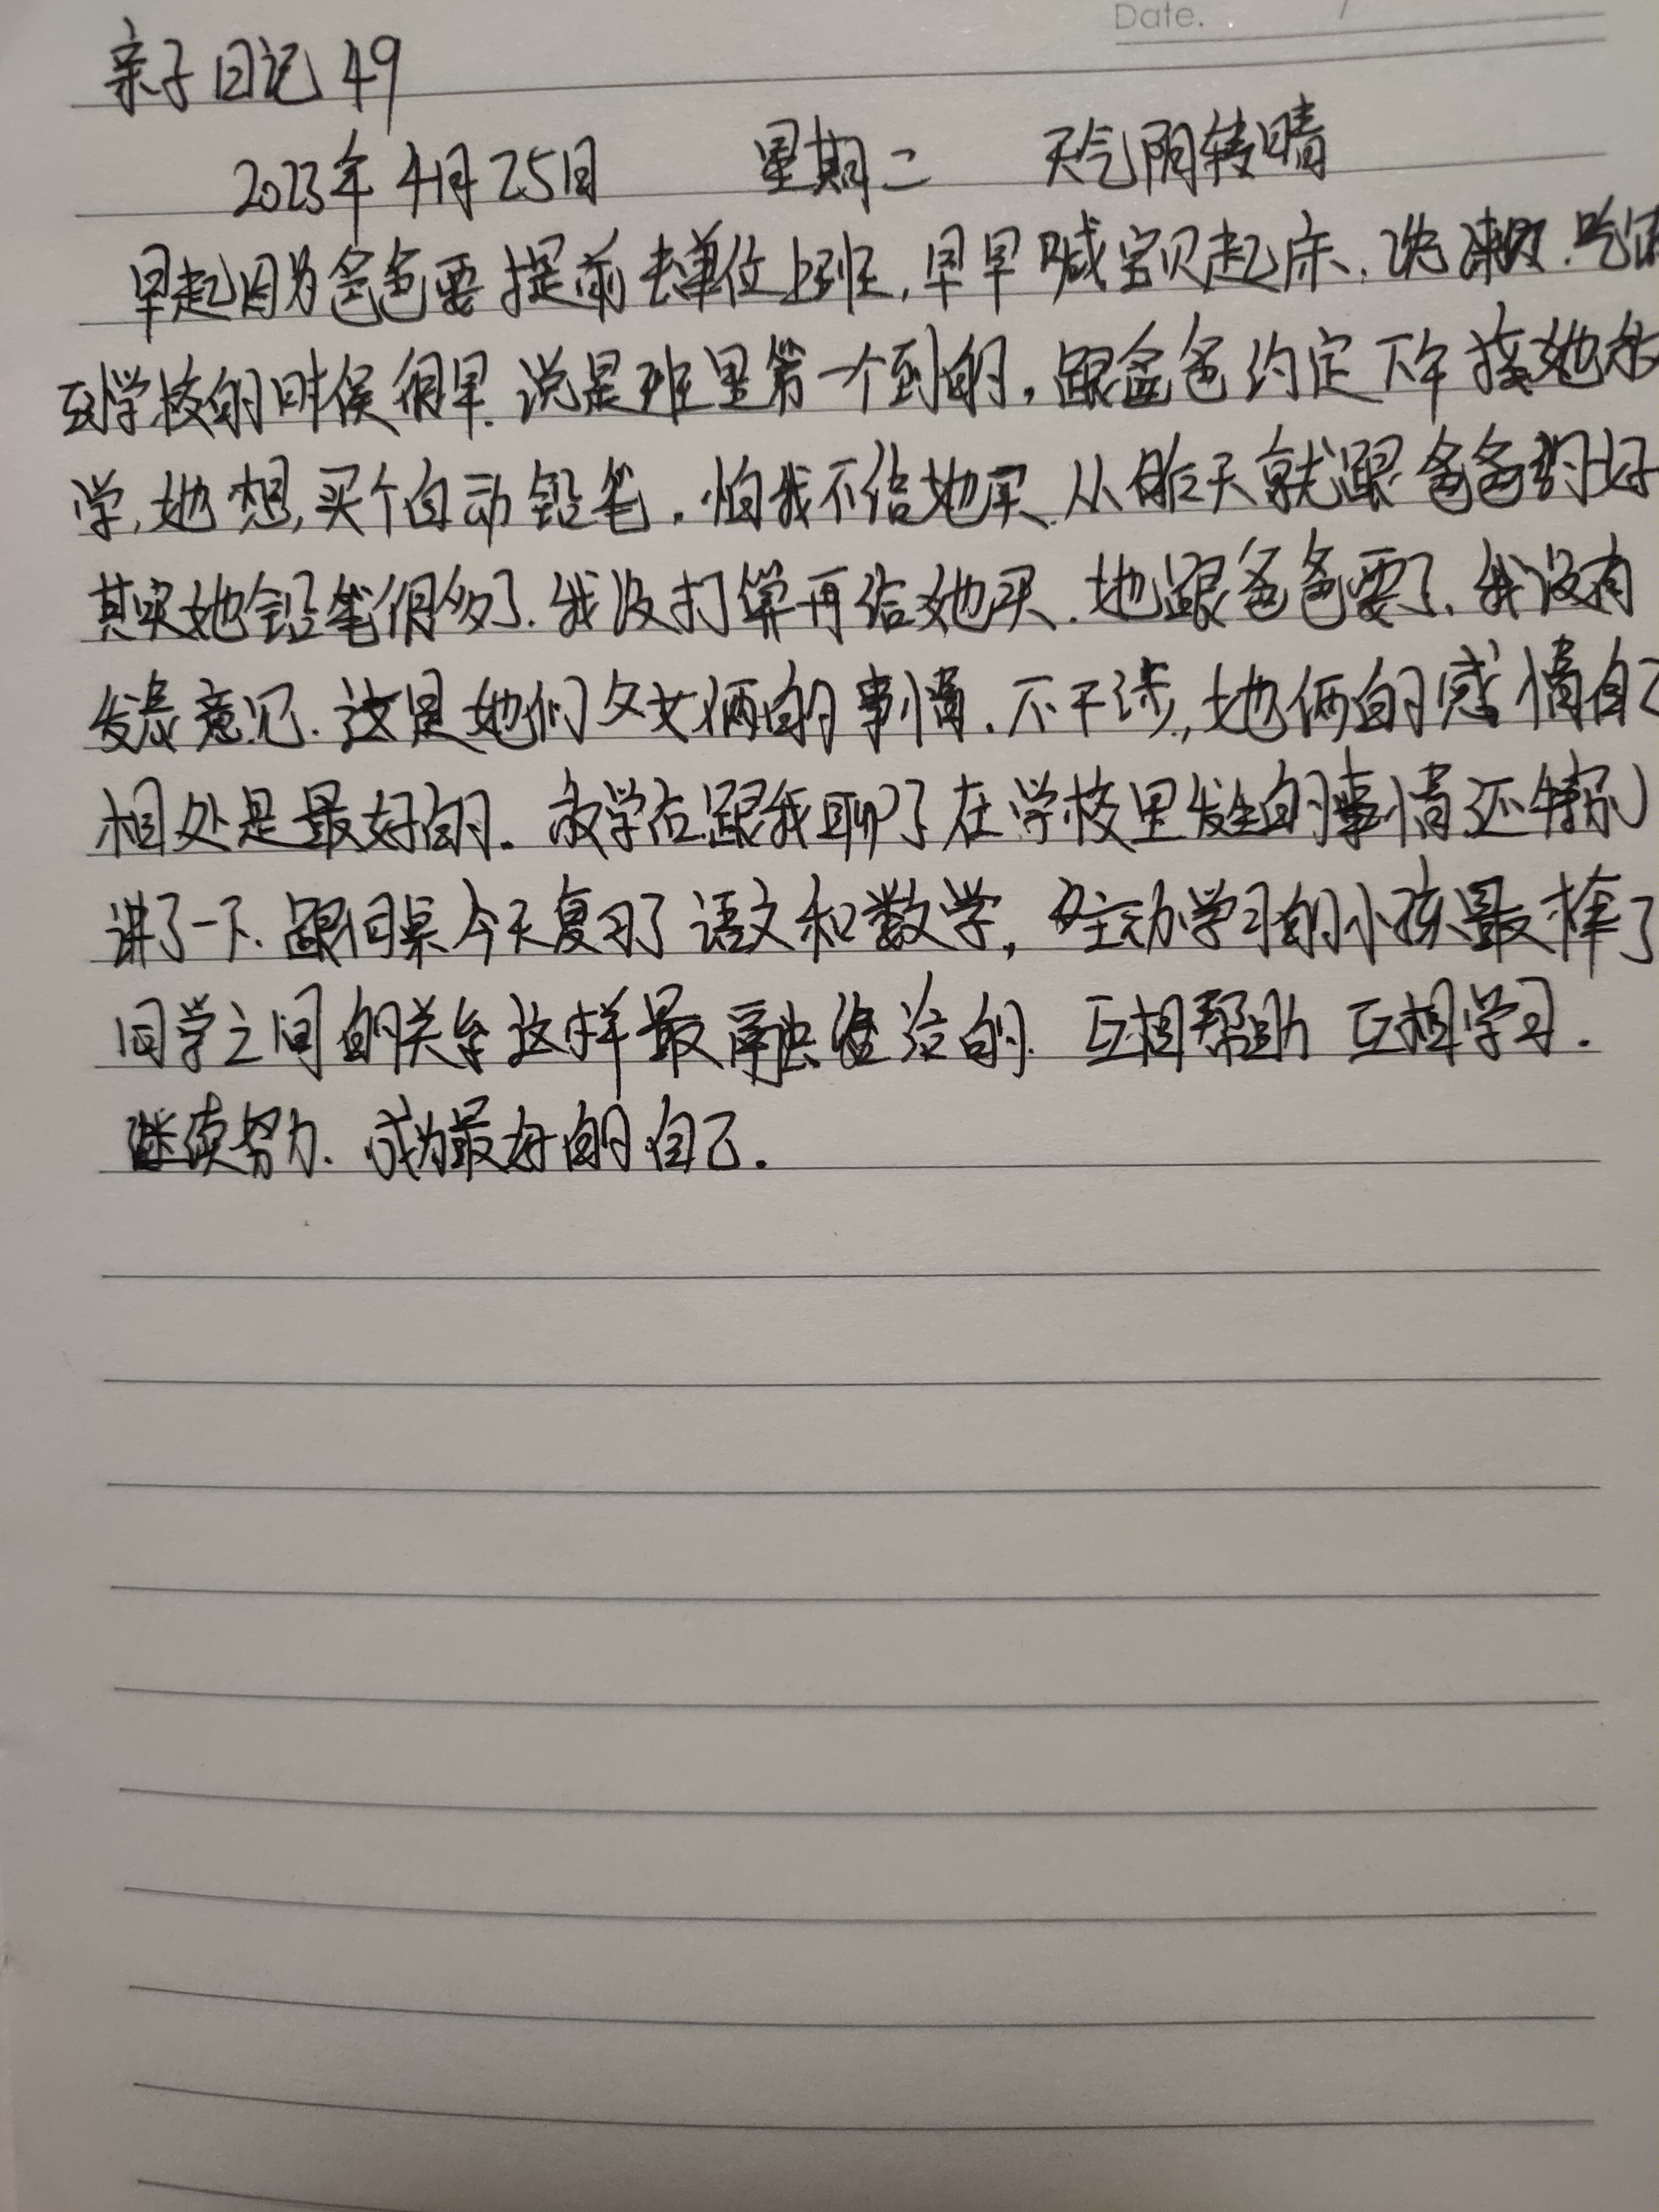 Date.
亲子日记 49
2023年4月25日 星期二 天气阴转晴
早起因为爸爸要提前去单位上班,早早喊宝贝起床,洗漱.吃
到学校的时候很早.说是班里第一个到的,跟爸爸约定下午接她放
学,她想,买个自动铅笔.怕我不给她买.从昨天就跟爸爸约好
其实她铅笔很多了.我没打算再给她买.她跟爸爸要了.我没有
发表意见.这是她们父女俩的事情.不干涉,她俩的感情自己
相处是最好的.放学后跟我聊了在学校里发生的事情还特别
讲了一下.跟同桌今天复习了语文和数学,主动学习的小孩最棒了
同学之间的关系这样最融洽的.互相帮助 互相学习.
继续努力.成为最好的自己.